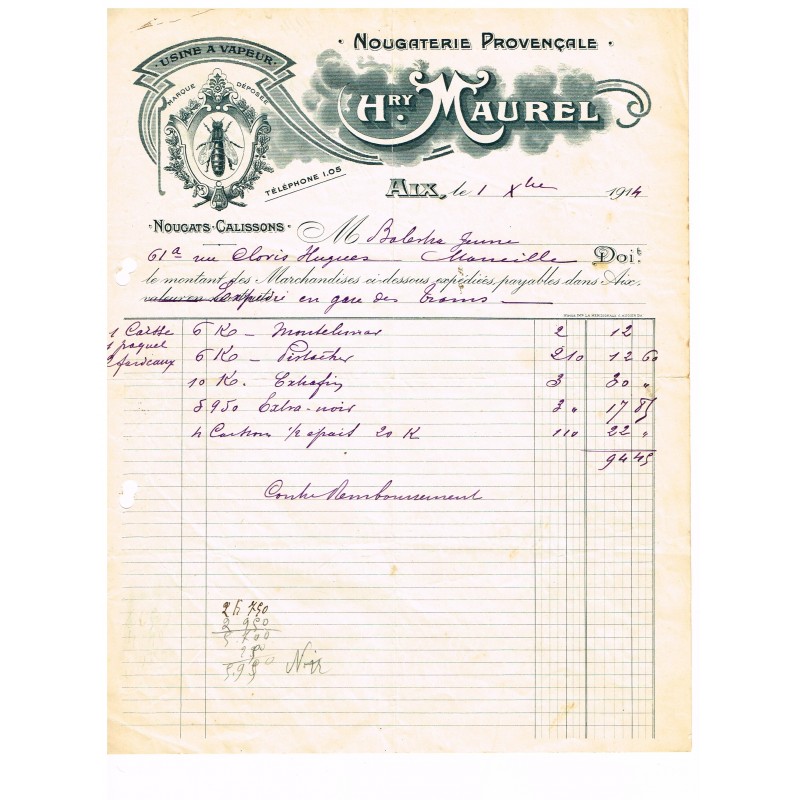 · NOUGATERIE PROVENÇALE ·
USINE A VAPEUR
MARQUE DÉPOSÉE
HRY. MAUREL
TÉLÉPHONE 1.05
AIX, le 1 Xbre 1914
NOUGATS·CALISSONS·
M Jeune
61a rue Clovis Hugues Marseille Doit
le montant des Marchandises ci-dessous expédiées, payables dans Aix,
valeur en Expédié en gare des Trams
1 Caisse 6 Ko Montelimar 2 12
1 paquet
2 fardeaux 6 Ko Pistaches 2 10 12 60
10 K. Extrafin 3 30 "
5 950 Extra-noir 3 " 17 85
4 Cartons 1/2 épais 20 K 1 10 22 "
94 45
Contre Remboursement
2 950
5 700
Noir